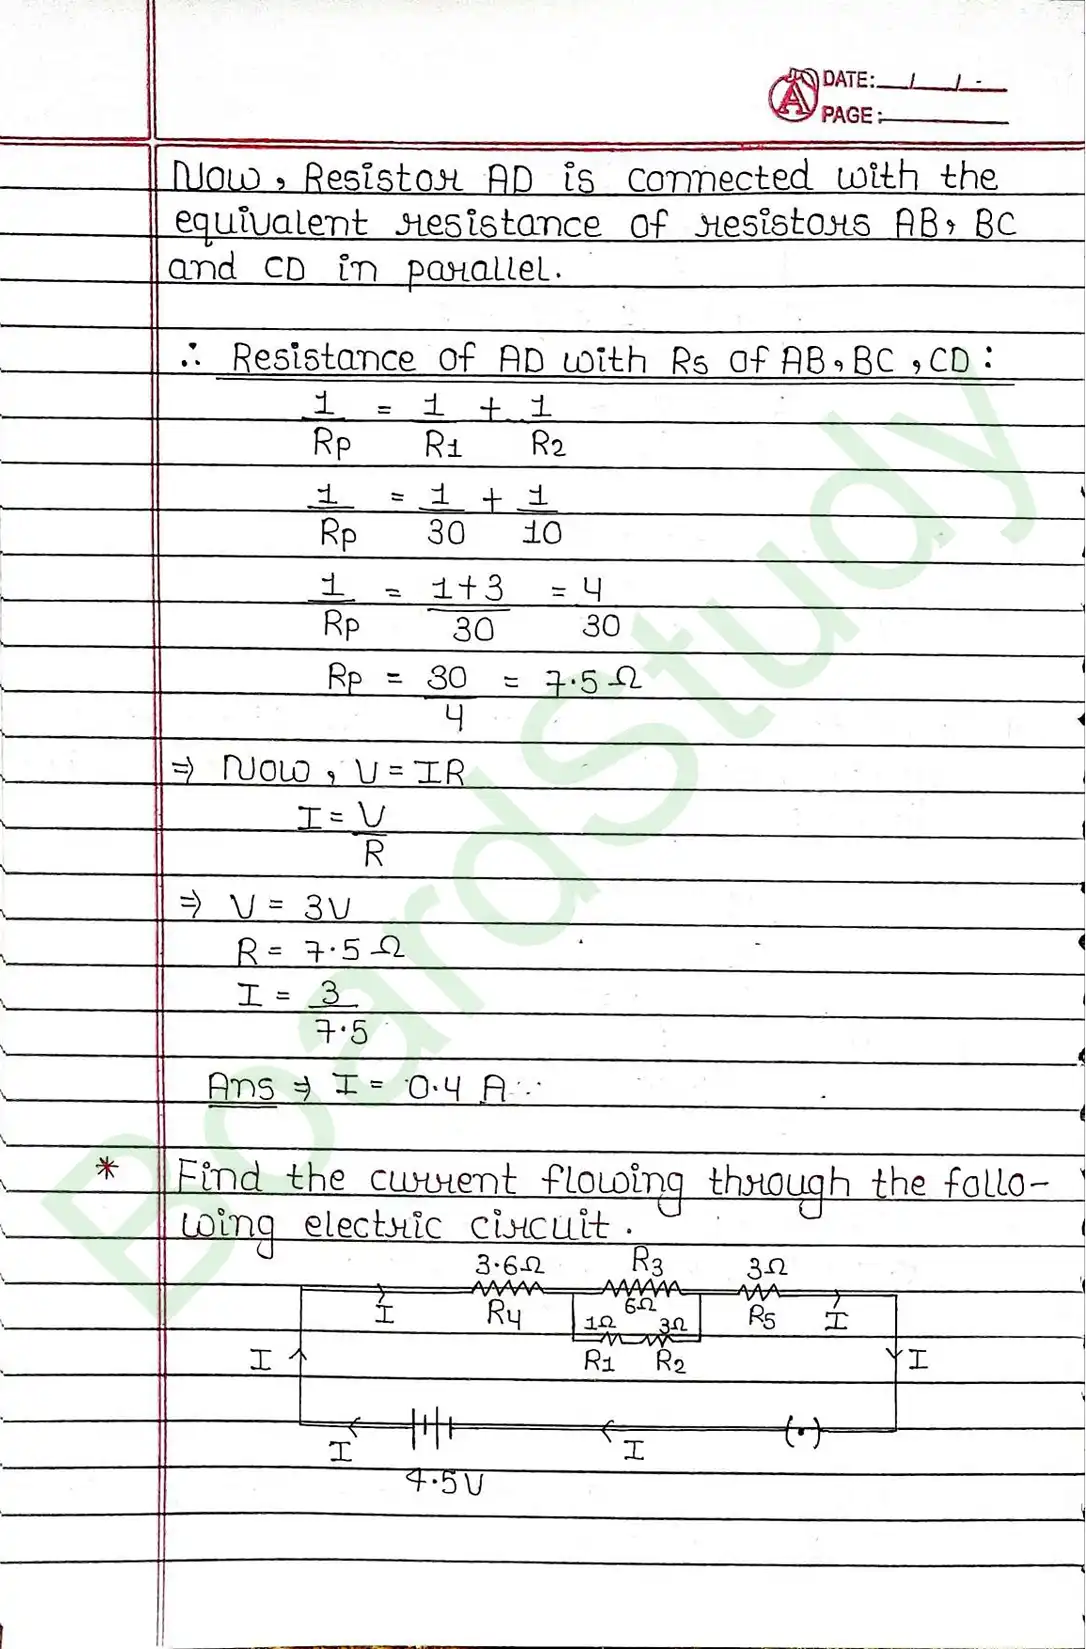 DATE: / / -
PAGE:
Now, Resistor AD is connected with the
equivalent resistance of resistors AB, BC
and CD in parallel.
∴ Resistance of AD with Rs of AB, BC, CD:
1/Rp = 1/R1 + 1/R2
1/Rp = 1/30 + 1/10
1/Rp = 1+3/30 = 4/30
Rp = 30/4 = 7.5 Ω
⇒ Now, V = IR
I = V/R
⇒ V = 3V
R = 7.5 Ω
I = 3/7.5
Ans ⇒ I = 0.4 A
* Find the current flowing through the follo-
wing electric circuit.
3.6Ω R3 3Ω
I R4 6Ω R5 I
1Ω 3Ω
I R1 R2 I
I I
4.5V
BoardStudy